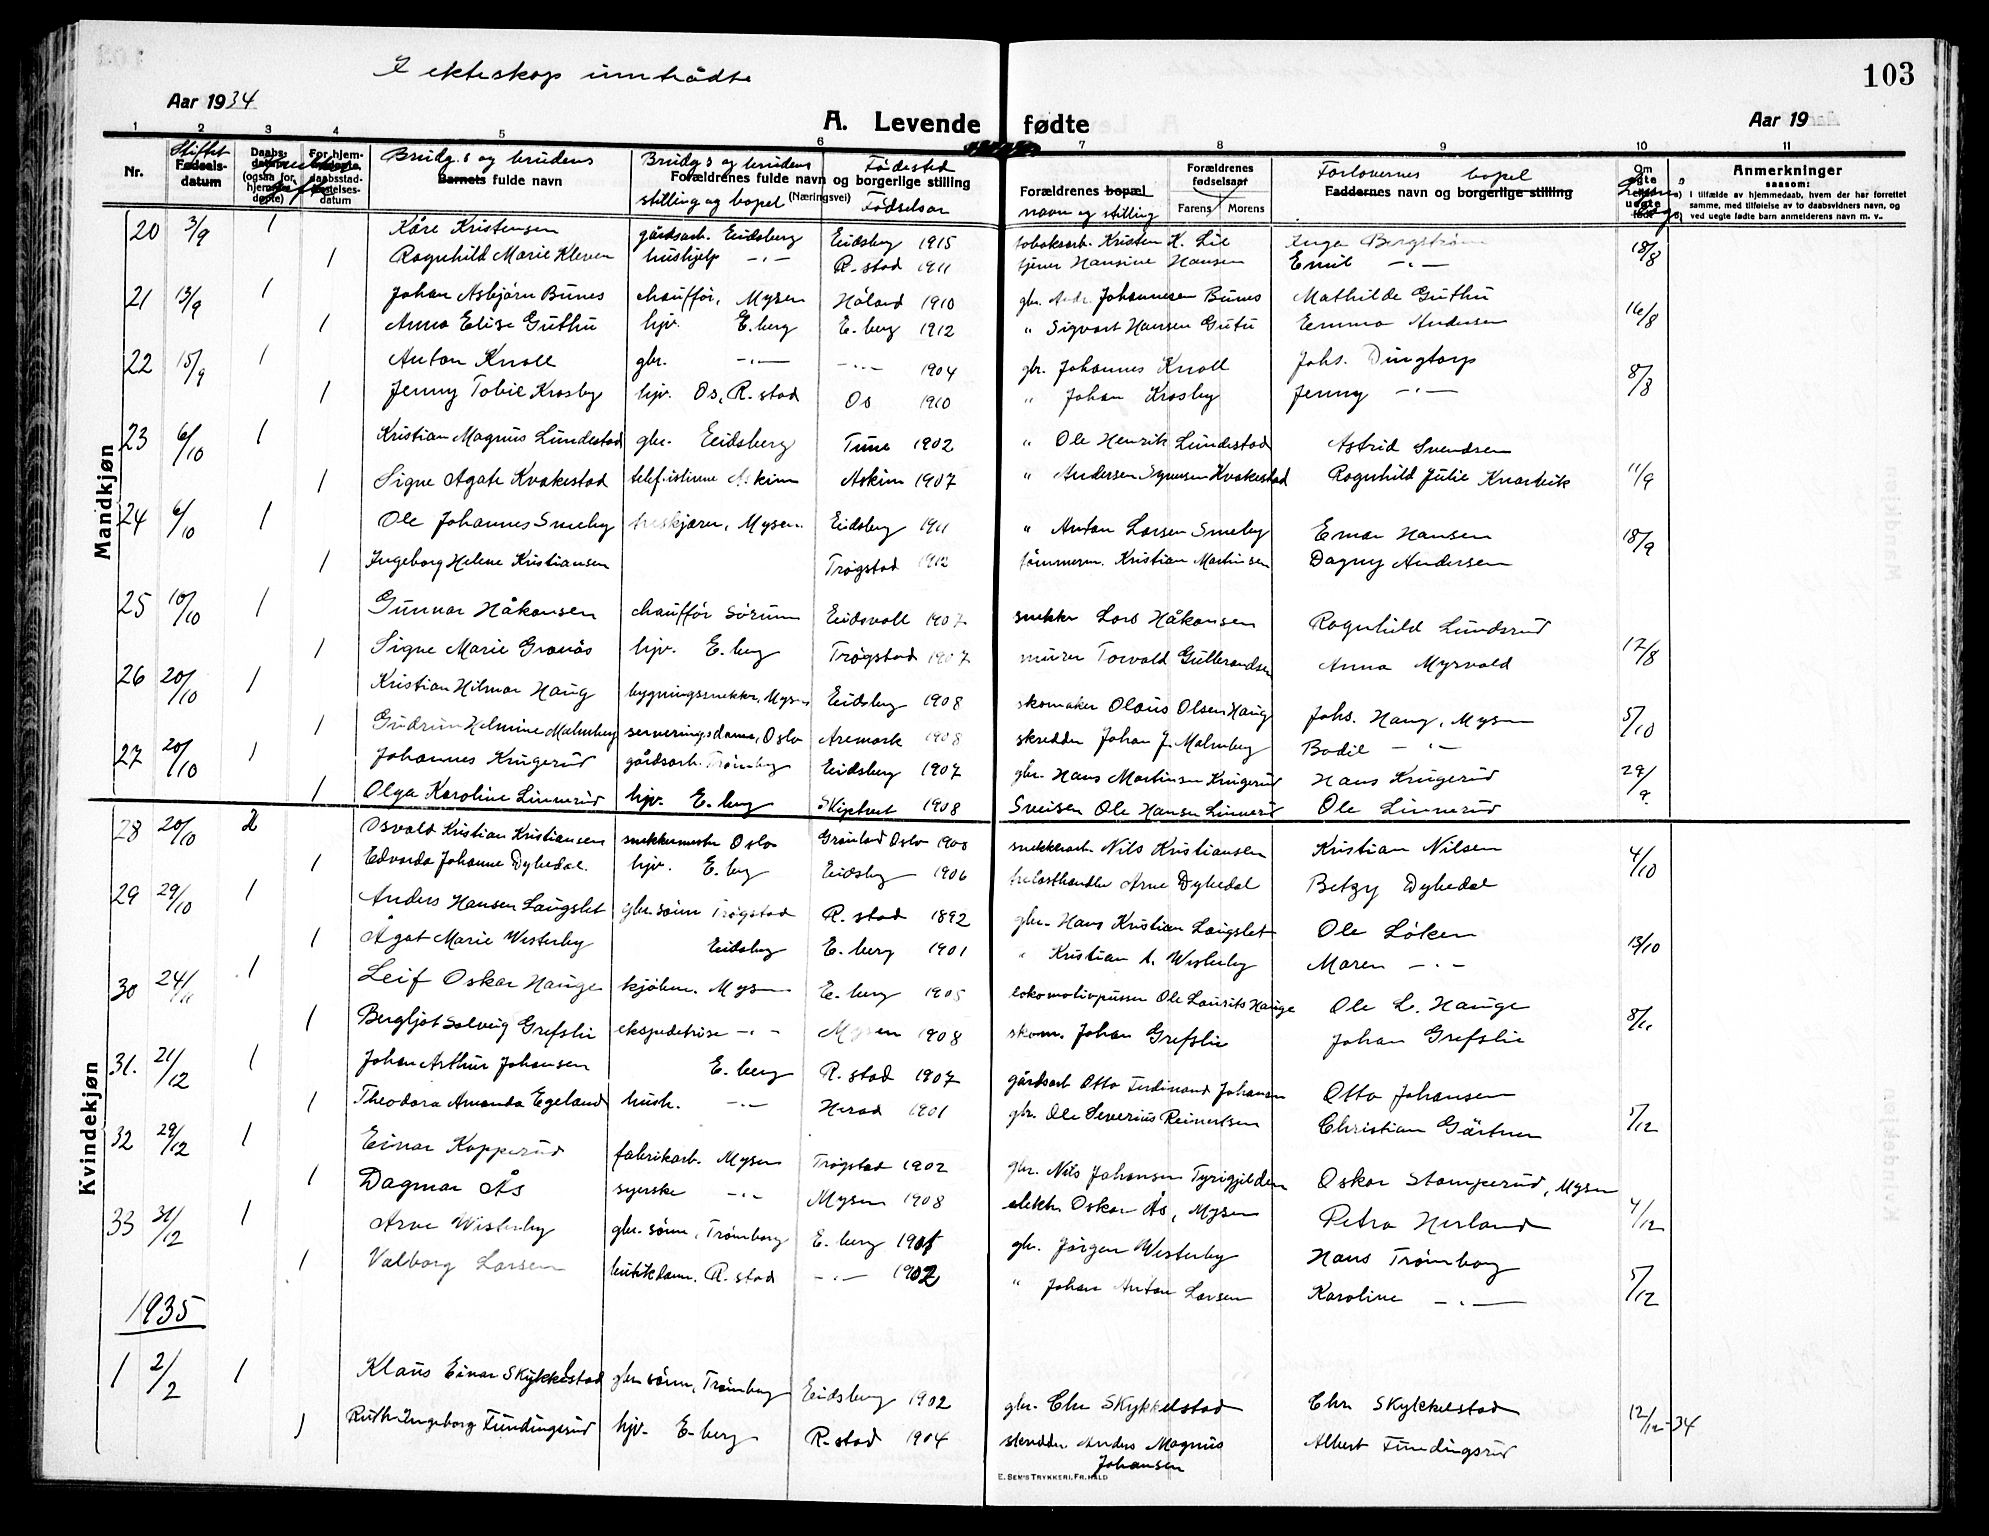 103
I ekteskap inntrådte
Aar 1934
A. Levende fødte
Aar 19
1 2 3 4 5 6 7 8 9 10 11
Nr. Stiftet Fødsels-datum Daabs-datum (ogsaa for hjemme-døpte) For hjem- daabsstad-festelses-datum Brudg.s og brudens Barnets fulde navn Brudg's og brudens Forældrenes fulde navn og borgerlige stilling (Næringsvei) stilling og bopel Fødested Fødselsår Forældrenes bopæl navn og stilling Forældrenes fødselsaar Farens Morens Forlovernes bopel Faddernes navn og borgerlige stilling Om ægte eller uegte født Anmerkninger saasom: I tilfælde av hjemmedaab, hvem der har forrettet samme, med tilføielse av to daabsvidners navn, og ved uegte fødte barn anmelderens navn m. v..
Mandkjøn
20 3/9 1 Kåre Kristensen gårdsarb. Eidsberg Eidsberg 1915 tobaksarb. Kristen K. Lie Inga Bergstrøm 18/8
1 Ragnhild Marie Kleven hushjelp -"- R.stad 1911 tjener Hansine Hansen Emil -"-
21 13/9 1 Johan Asbjørn Bunes chauffør, Mysen Høland 1910 gbr. Andr. Johannesen Bunes Mathilde Guthu 16/8
1 Anna Elise Guthu hjv. E.berg E.berg 1912 " Sigvart Hansen Gutu Emma Andersen
22 15/9 1 Anton Knoll gbr. -"- -"- 1904 gbr. Johannes Knoll Johs. Dingtorp 8/8
1 Jenny Tobie Krosby hjv. Os, R.stad Os 1910 " Johan Krosby Jenny -"-
23 6/10 1 Kristian Magnus Lundestad gbr. Eidsberg Tune 1902 " Ole Henrik Lundestad Astrid Svendsen 11/9
1 Signe Agate Kvakestad telef.istinne Askim Askim 1907 " Andersen Syversen Kvakestad Ragnhild Julie Knarbeik
24 6/10 1 Ole Johannes Smeby treskjærer, Mysen Eidsberg 1911 " Anton Larsen Smeby Einar Hansen 18/9
1 Ingeborg Helene Kristiansen Trøgstad 1912 tømmerm. Kristian Martinsen Dagny Andersen
25 10/10 1 Gunnar Håkonsen chauffør Sørum Eidsvoll 1907 snekker Lars Håkonsen Ragnhild Lundsrud 17/8
1 Signe Marie Granås hjv. E.berg Trøgstad 1907 murer Torvald Gulbrandsen Anna Myrvold
26 20/10 1 Kristian Hilmar Haug bygningssnekker, Mysen Eidsberg 1908 skomaker Olaus Olsen Haug Johs. Haug, Mysen 5/10
1 Gudrun Helmine Malmberg serveringsdame, Oslo Aremark 1908 skredder Johan J. Malmberg Bodil -"-
27 20/10 1 Johannes Krugerud gårdsarb. Trømborg Eidsberg 1907 gbr. Hans Martinsen Krugerud Hans Krugerud 29/9.
1 Olga Karoline Linnerud hjv. E.berg Skiptvet 1908 Sveisen Ole Hansen Linnerud Ole Linnerud
Kvindekjøn
28 20/10 2 Osvald Kristian Kristiansen snekkermester Oslo Grønland Oslo 1900 snekkerarb. Nils Kristiansen Kristian Nilsen 4/10
1 Edvarda Johanne Dyhedal. hjv. E.berg Eidsberg 1906 trelasthandler Arne Dyhedal Betzy Dyhedal
29 29/10 1 Anders Hansen Langslet gbr.sønn Trøgstad R.stad 1892 gbr. Hans Kristian Langslet Ole Løken 13/10
1 Ågot Marie Westerby Eidsberg E.berg 1901 " Kristian A. Westerby Maren -"-
30 24/11 1 Leif Oskar Hauge kjøbm. Mysen E.berg 1905 lokomotivpusser Ole Laurits Hauge Ole L. Hauge 8/11
1 Bergljot Solveig Grefslie ekspeditrise -"- Mysen 1908 skom. Johan Grefslie Johan Grefslie
31. 21/12 1 Johan Arthur Johansen E.berg R.stad 1907 gårdsarb. Otto Ferdinand Johansen Otto Johansen 5/12
1 Theodora Amanda Egeland hush. -"- Herad 1901 gbr. Ole Severius Reinertsen Christian Gärtner
32 29/12 1 Einar Kopperud fabrikarb. Mysen Trøgstad 1902 gbr. Nils Johansen Tyrigjelden Oskar Stamperud, Mysen 4/12
1 Dagmar Ås syerske -"- Mysen 1908 elektr. Oskar Ås, Mysen Petra Herland
33 31/12 1 Arne Westerby gbr.sønn, Trømborg E.berg 1901 gbr. Jørgen Westerby Hans Trømborg 5/12
1 Valborg Larsen butikdame, R.stad -"- 1902 " Johan Anton Larsen Karoline -"-
1935
1 2/2 1 Klaus Einar Skykkelstad gbr.sønn, Trømborg Eidsberg 1902 gbr. Chr Skykkelstad Chr Skykkelstad 12/12-34
1 Ruth Ingeborg Fundingsrud hjv. E.berg R.stad 1904 skredder Anders Magnus Johansen Albert Fundingsrud
E. SEM'S TRYKKERI, FR.HALD